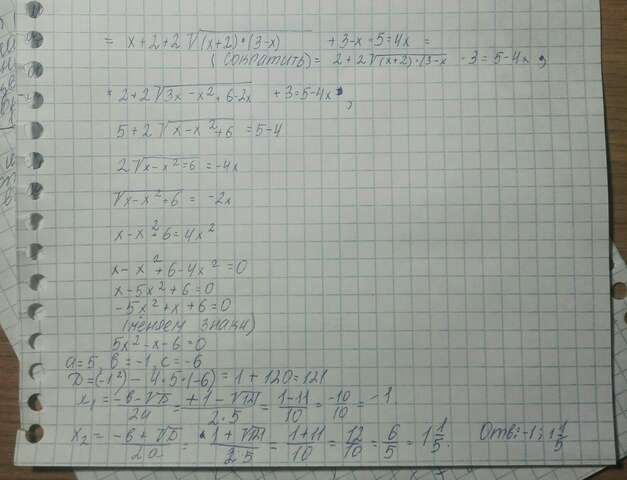 = x+2+2√(x+2)·(3-x) + 3-x-5=4x =
(сократить) = 2+2√(x+2)·(3-x -3=5-4x,
2+2√3x-x²+6-2x +3=5-4x,
5+2√x-x²+6 =5-4
2√x-x²=6 =-4x
√x-x²+6 = -2x
x-x²-6=4x²
x-x²+6-4x²=0
x-5x²+6=0
-5x²+x+6=0
(меняем знаки)
5x²-x-6=0
a=5, b=-1, c=-6
D=(-1²)-4·5·(-6)=1+120=121
x₁=-b-√D/2a=+1-√121/2·5=1-11/10=-10/10=-1.
x₂=-b+√D/2a=1+√121/2·5=1+11/10=12/10=6/5=1 1/5. Отв: -1; 1 1/5